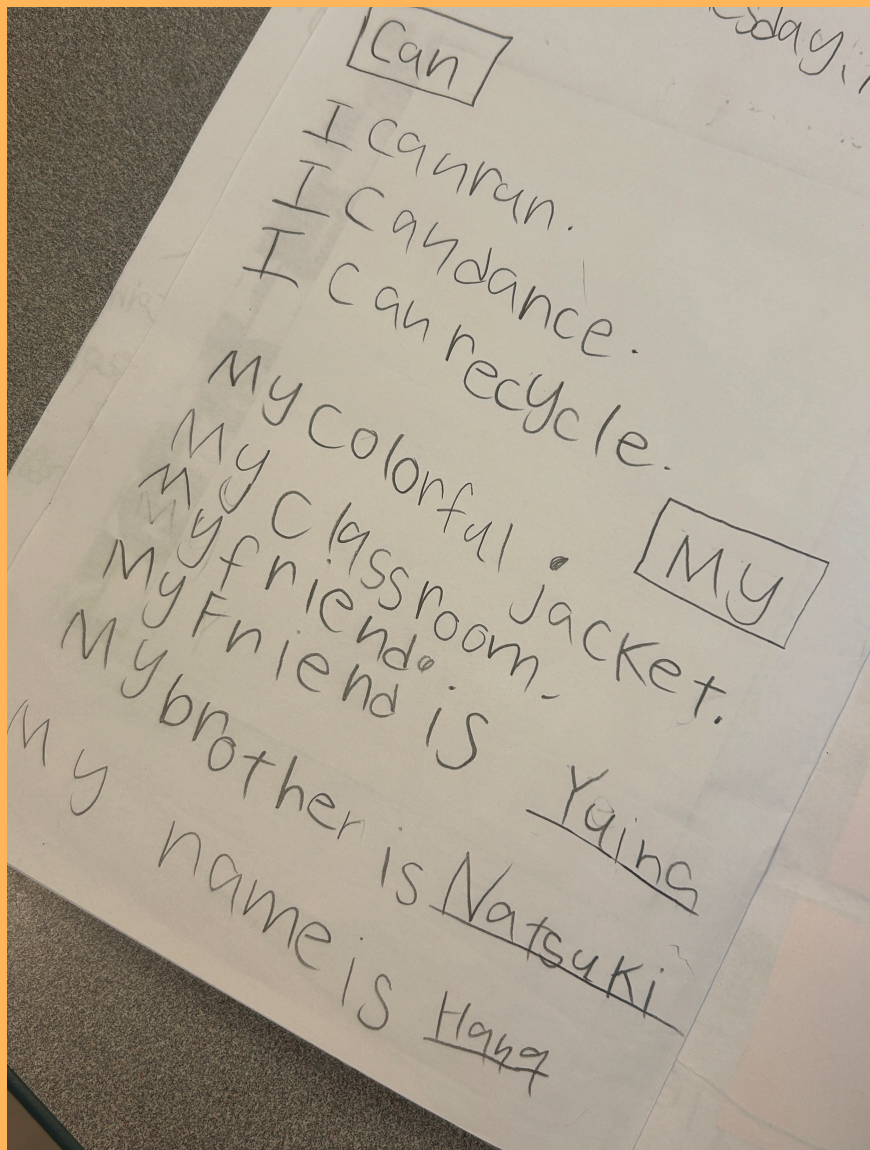 Can
I can run.
I can dance.
I can recycle.
My
My colorful jacket.
My Classroom.
My friend.
My Friend is
My brother is Natsuki
My name is